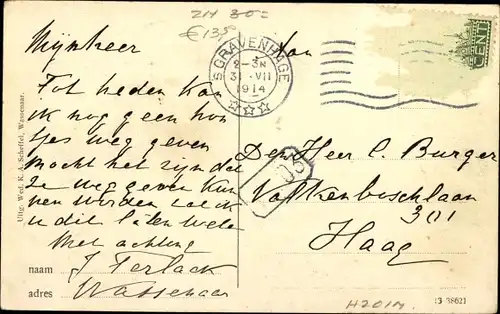 ZH 30=
€ 135
Mijnheer
Tot heden kan
ik nog geen hon
tjes weg geven
mocht het zijn dat
ze weg geven kun
nen worden zal ik
u dit laten weten
Met achting
naam J Terlack
adres Wassenaar
Uitg. Wed. K. A. Scheffel, Wassenaar.
'S GRAVENHAGE
2-3N
31 VII
1914
CENT
Aan
Den Heer C. Burger
Valkenboschlaan
301
Haag
H2019
13 38621